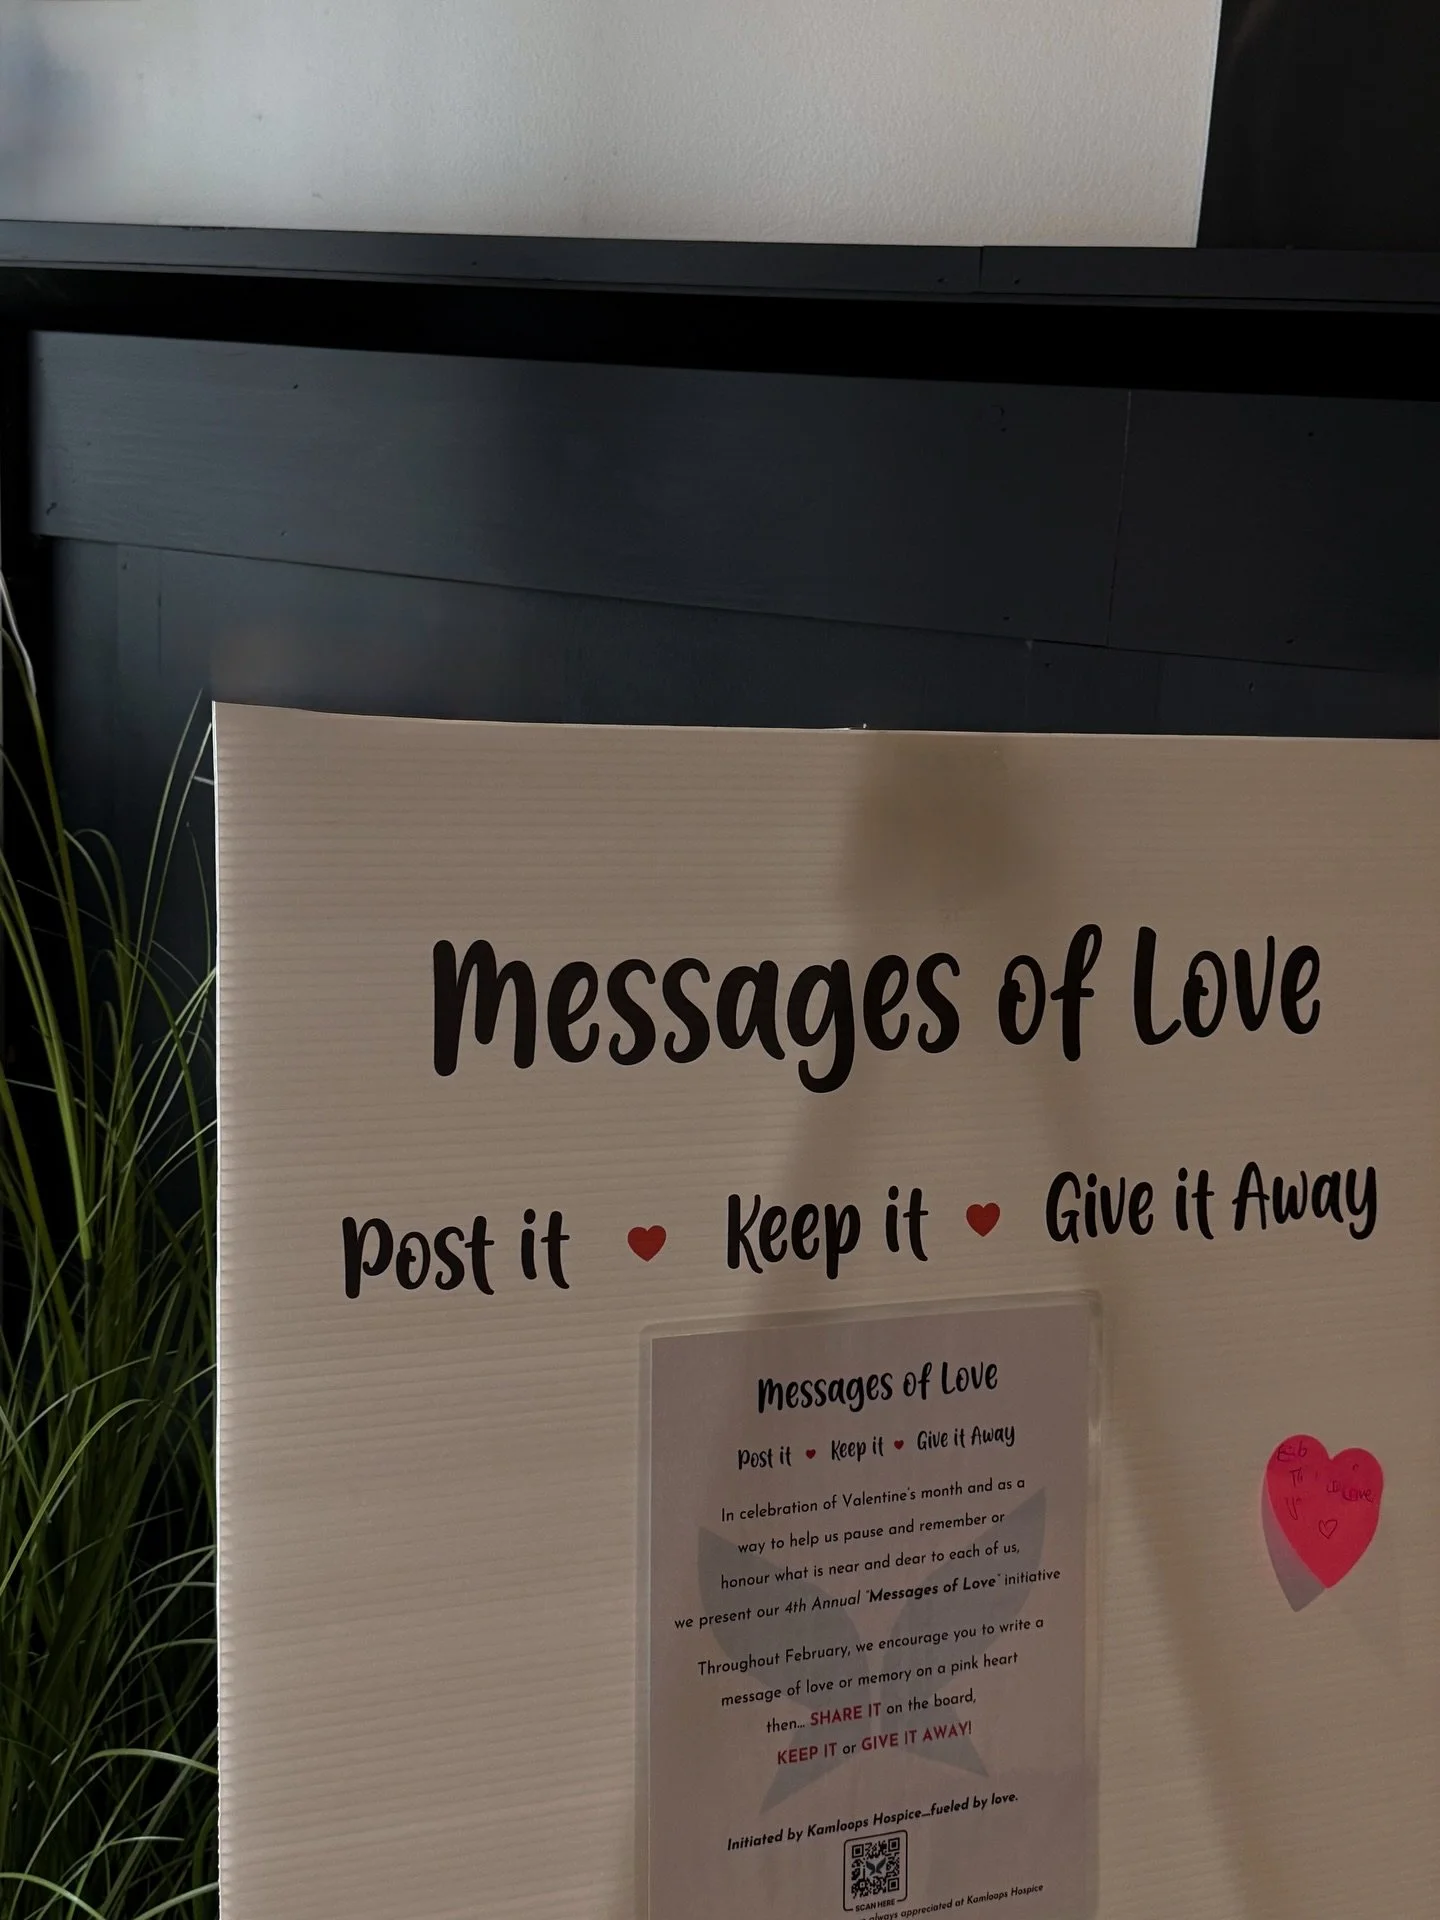 Messages of Love
Post it ♥ Keep it ♥ Give it Away
Messages of Love
Post it ♥ Keep it ♥ Give it Away
In celebration of Valentine's month and as a
way to help us pause and remember or
honour what is near and dear to each of us,
we present our 4th Annual "Messages of Love" initiative
Throughout February, we encourage you to write a
message of love or memory on a pink heart
then... SHARE IT on the board,
KEEP IT or GIVE IT AWAY!
Initiated by Kamloops Hospice...fueled by love.
SCAN HERE
always appreciated at Kamloops Hospice
Love
♡